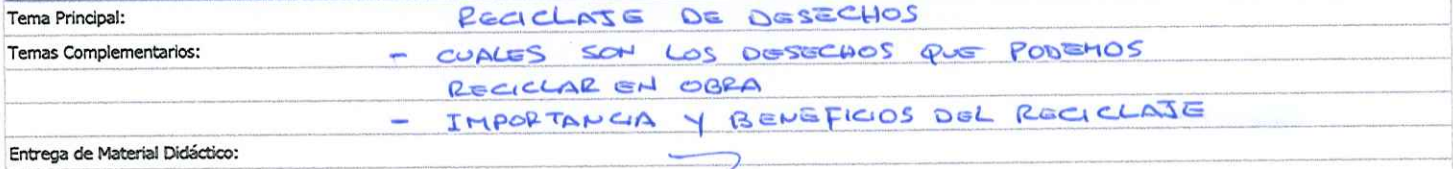 Tema Principal: RECICLAJE DE DESECHOS
Temas Complementarios: - CUALES SON LOS DESECHOS QUE PODEMOS
RECICLAR EN OBRA
- IMPORTANCIA Y BENEFICIOS DEL RECICLAJE
Entrega de Material Didáctico: